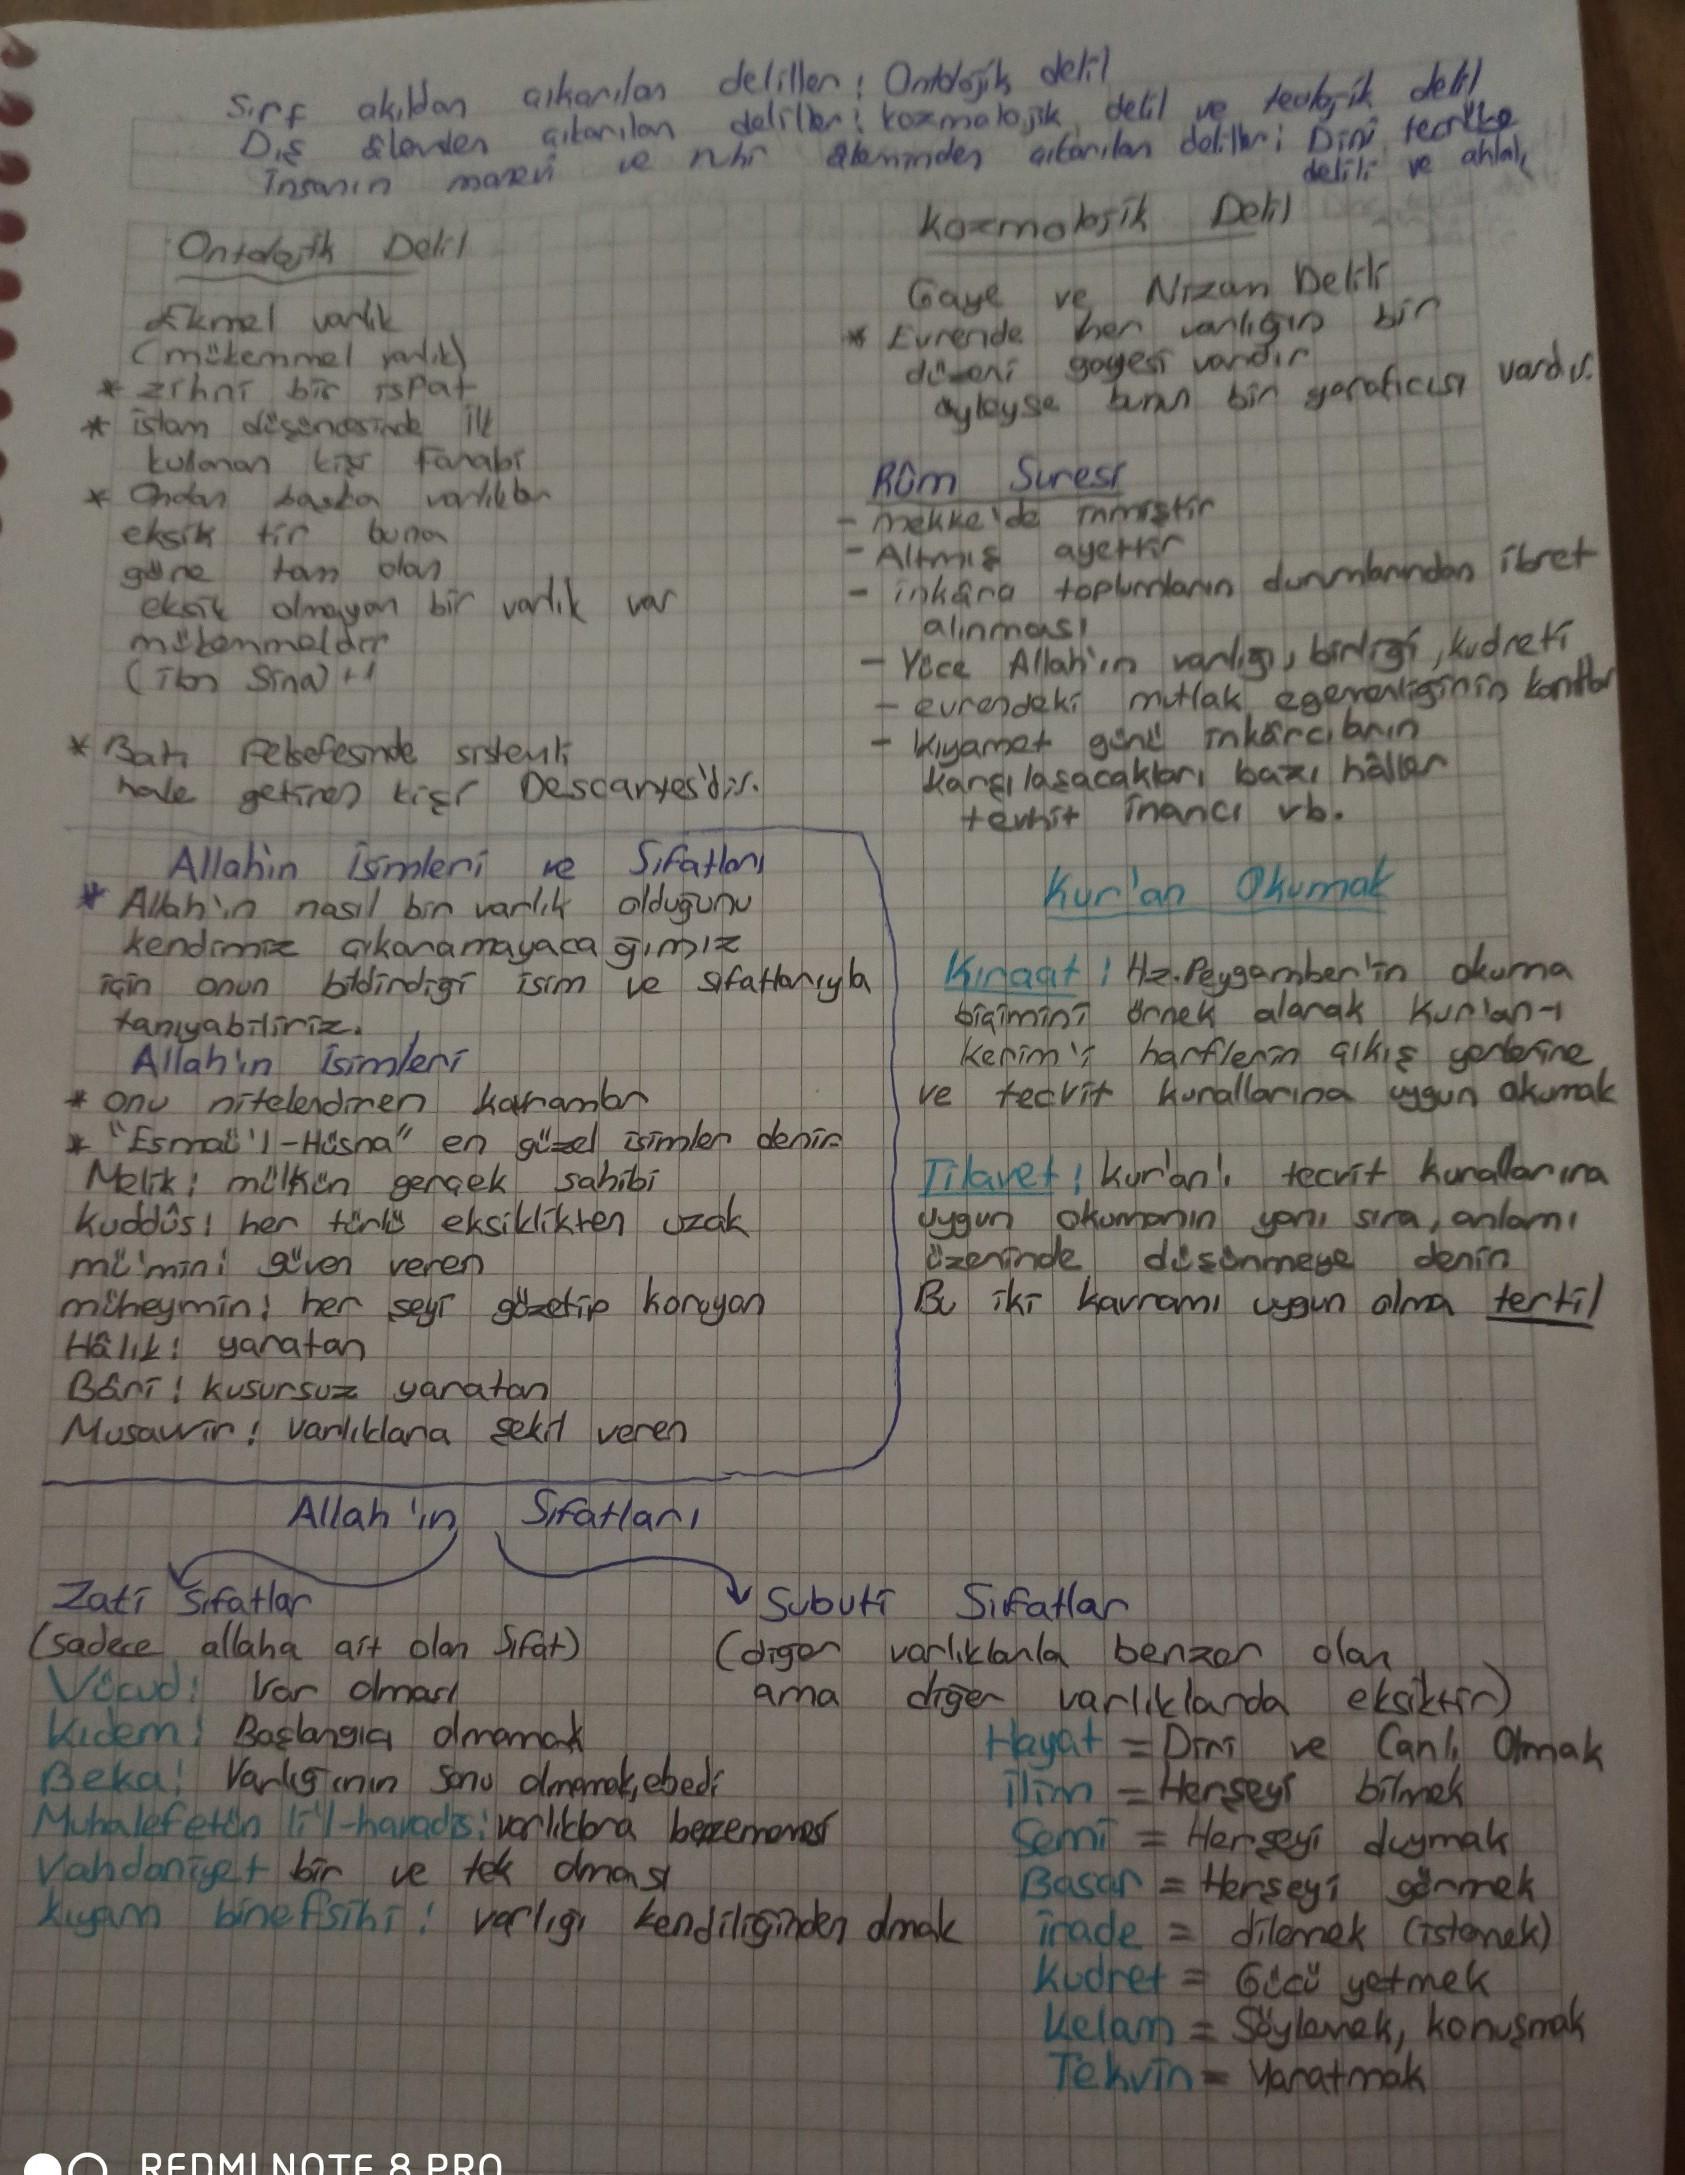 Sırf akıldan çıkarılan deliller: Ontolojik delil
Dış âlemden çıkarılan deliller: kozmolojik delil ve teolojik delil
İnsanın manevi ve ruhi âleminden çıkarılan deliller: Dini tecrübe
delili ve ahlak
Ontolojik Delil
Ekmel varlık
(mükemmel varlık)
* zihni bir ispat
* islam düşüncesinde ilk
kulanan kişi Farabi
* Ondan başka varlıklar
eksik tir buna
göre tam olan
eksik olmayan bir varlık var
mükemmeldir
(ibn Sina)
* Batı felsefesinde sistemli
hale getiren kişi Descartes'dir.
Kozmolojik Delil
Gaye ve Nizam Delili
* Evrende her varlığın bir
düzeni gayesi vardır
öyleyse bunun bir yaratıcısı vardır.
Rûm Suresi
- Mekke'de inmiştir
- Altmış ayettir
- inkârcı toplumların durumlarından ibret
alınması
- Yüce Allah'ın varlığı, birliği, kudreti
- evrendeki mutlak egemenliğinin kanıtları
- Kıyamet günü inkârcıların
karşılaşacakları bazı hâller
tevhit inancı vb.
Allah'ın İsimleri ve Sıfatları
* Allah'ın nasıl bir varlık olduğunu
kendimiz çıkaramayacağımız
için onun bildirdiği isim ve sıfatlarıyla
tanıyabiliriz.
Allah'ın İsimleri
* onu nitelendiren kavramlar
* "Esmaü'l-Hüsna" en güzel isimler denir
Melik: mülkün gerçek sahibi
Kuddûs: her türlü eksiklikten uzak
mü'min: güven veren
müheymin: her şeyi gözetip koruyan
Hâlık: yaratan
Bâri: kusursuz yaratan
Musavvir: varlıklara şekil veren
Kur'an Okumak
Kıraat: Hz.Peygamber'in okuma
biçimini örnek alarak Kur'an-ı
Kerim'i harflerin çıkış yerlerine
ve tecvit kurallarına uygun okumak
Tilavet: Kur'an'ı tecvit kurallarına
uygun okumanın yanı sıra, anlamı
üzerinde düşünmeye denir
Bu iki kavramı uygun olma tertil
Allah'ın Sıfatları
Zati Sıfatlar
(sadece allaha ait olan Sıfat)
Vücud: Var olması
Kıdem: Başlangıcı olmamak
Beka: Varlığının sonu olmamak, ebedi
Muhalefetün li'l-havadis: varlıklara benzememesi
Vahdaniyet bir ve tek olması
kıyam binefsihi: varlığı kendiliğinden olmak
Subuti Sıfatlar
(diğer varlıklarla benzer olan
ama diğer varlıklarda eksiktir)
Hayat = Diri ve Canlı Olmak
ilim = Herşeyi bilmek
Semi = Herşeyi duymak
Basar = Herşeyi görmek
irade = dilemek (istemek)
Kudret = Gücü yetmek
Kelam = Söylemek, konuşmak
Tekvin = Yaratmak
REDMI NOTE 8 PRO